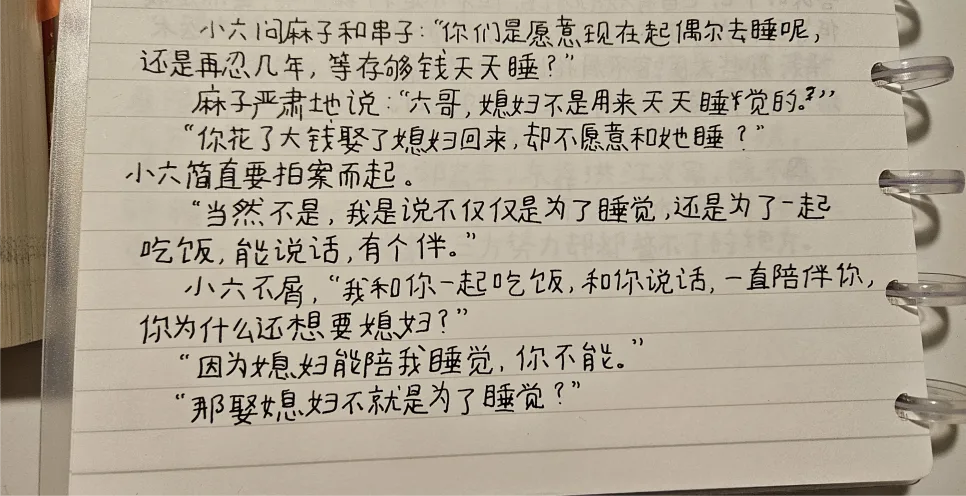 小六问麻子和串子：“你们是愿意现在起偶尔去睡呢，
还是再忍几年，等存够钱天天睡？”
麻子严肃地说：“六哥，媳妇不是用来天天睡觉的。?”
“你花了大钱娶了媳妇回来，却不愿意和她睡？”
小六简直要拍案而起。
“当然不是，我是说不仅仅是为了睡觉，还是为了一起
吃饭，能说话，有个伴。”
小六不屑，“我和你一起吃饭，和你说话，一直陪伴你，
你为什么还想要媳妇？”
“因为媳妇能陪我睡觉，你不能。”
“那娶媳妇不就是为了睡觉？”